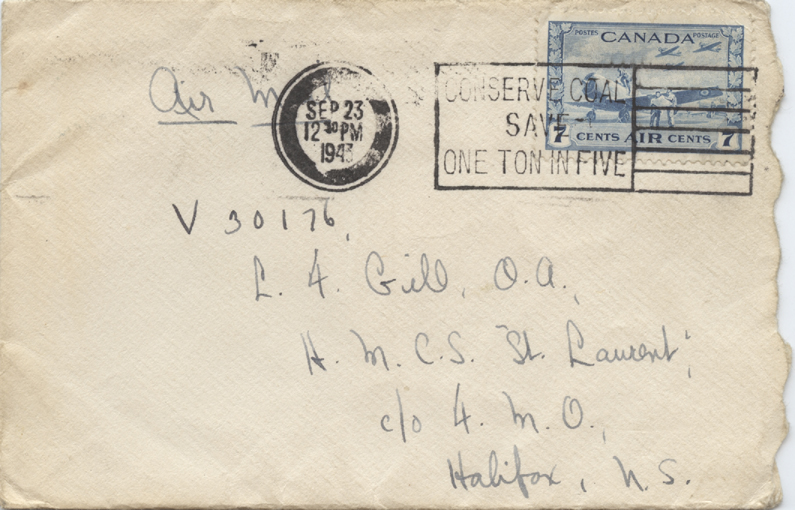 POSTES CANADA POSTAGE
Air Mail
SEP 23
12 30 PM
1943
CONSERVE COAL
SAVE
ONE TON IN FIVE
7 CENTS AIR CENTS 7
V 30176,
L. A. Gill, O.A.,
H. M. C. S. "St. Laurent",
c/o F. M. O.,
Halifax, N. S.